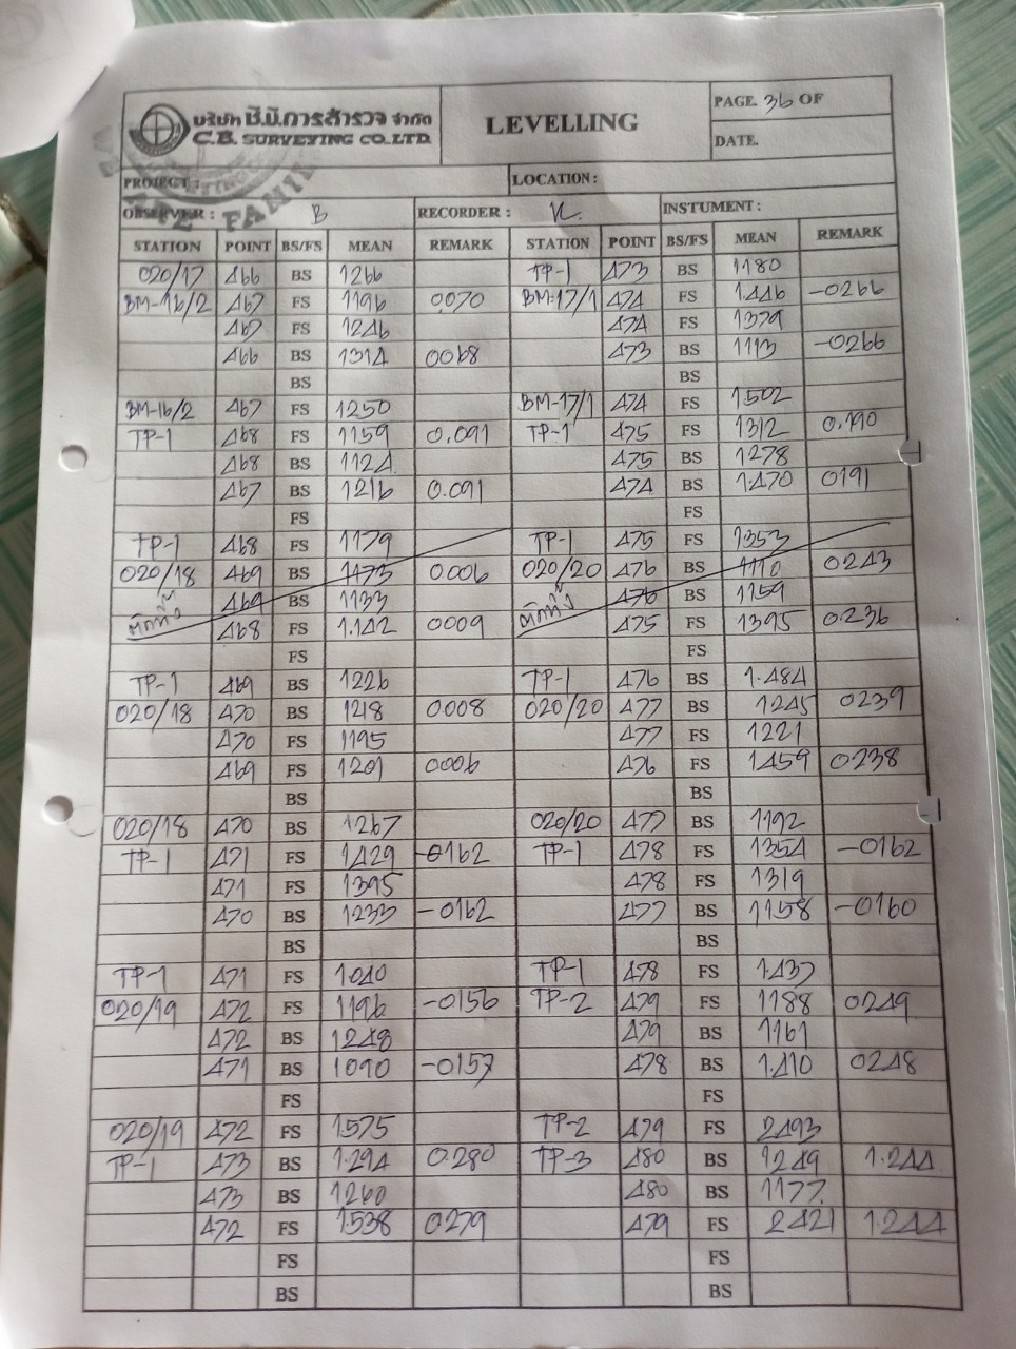 บริษัท ซี.บี.การสำรวจ จำกัด
C.B. SURVEYING CO.,LTD.
LEVELLING
PAGE. 36 OF
DATE.
PROJECT :
LOCATION :
OBSERVER : B
RECORDER :
INSTUMENT :
STATION POINT BS/FS MEAN REMARK STATION POINT BS/FS MEAN REMARK
020/17 466 BS 1266 TP-1 473 BS 1180
BM-16/2 467 FS 1196 0070 BM-17/1 474 FS 1446 -0266
467 FS 1246 474 FS 1379
466 BS 1314 0068 473 BS 1113 -0266
BS BS
BM-16/2 467 FS 1250 BM-17/1 474 FS 1502
TP-1 468 FS 1159 0.091 TP-1 475 FS 1312 0.190
468 BS 1124 475 BS 1278
467 BS 1216 0.091 474 BS 1.470 0191
FS FS
TP-1 468 FS 1179 TP-1 475 FS 1353
020/18 469 BS 1173 0.006 020/20 476 BS 1110 0243
469 BS 1133 476 BS 1159
468 FS 1.142 0009 475 FS 1395 0236
FS FS
TP-1 469 BS 1226 TP-1 476 BS 1.484
020/18 470 BS 1218 0008 020/20 477 BS 1245 0239
470 FS 1195 477 FS 1221
469 FS 1201 0006 476 FS 1459 0238
BS BS
020/18 470 BS 1267 020/20 477 BS 1192
TP-1 471 FS 1429 -0162 TP-1 478 FS 1354 -0162
471 FS 1395 478 FS 1319
470 BS 1233 -0162 477 BS 1158 -0160
BS BS
TP-1 471 FS 1040 TP-1 478 FS 1.437
020/19 472 FS 1196 -0156 TP-2 479 FS 1188 0249
472 BS 1248 479 BS 1161
471 BS 1090 -0157 478 BS 1.410 0248
FS FS
020/19 472 FS 1575 TP-2 479 FS 2493
TP-1 473 BS 1.294 0.280 TP-3 480 BS 1249 1.244
473 BS 1260 480 BS 1177
472 FS 1538 0279 479 FS 2421 1.244
FS FS
BS BS